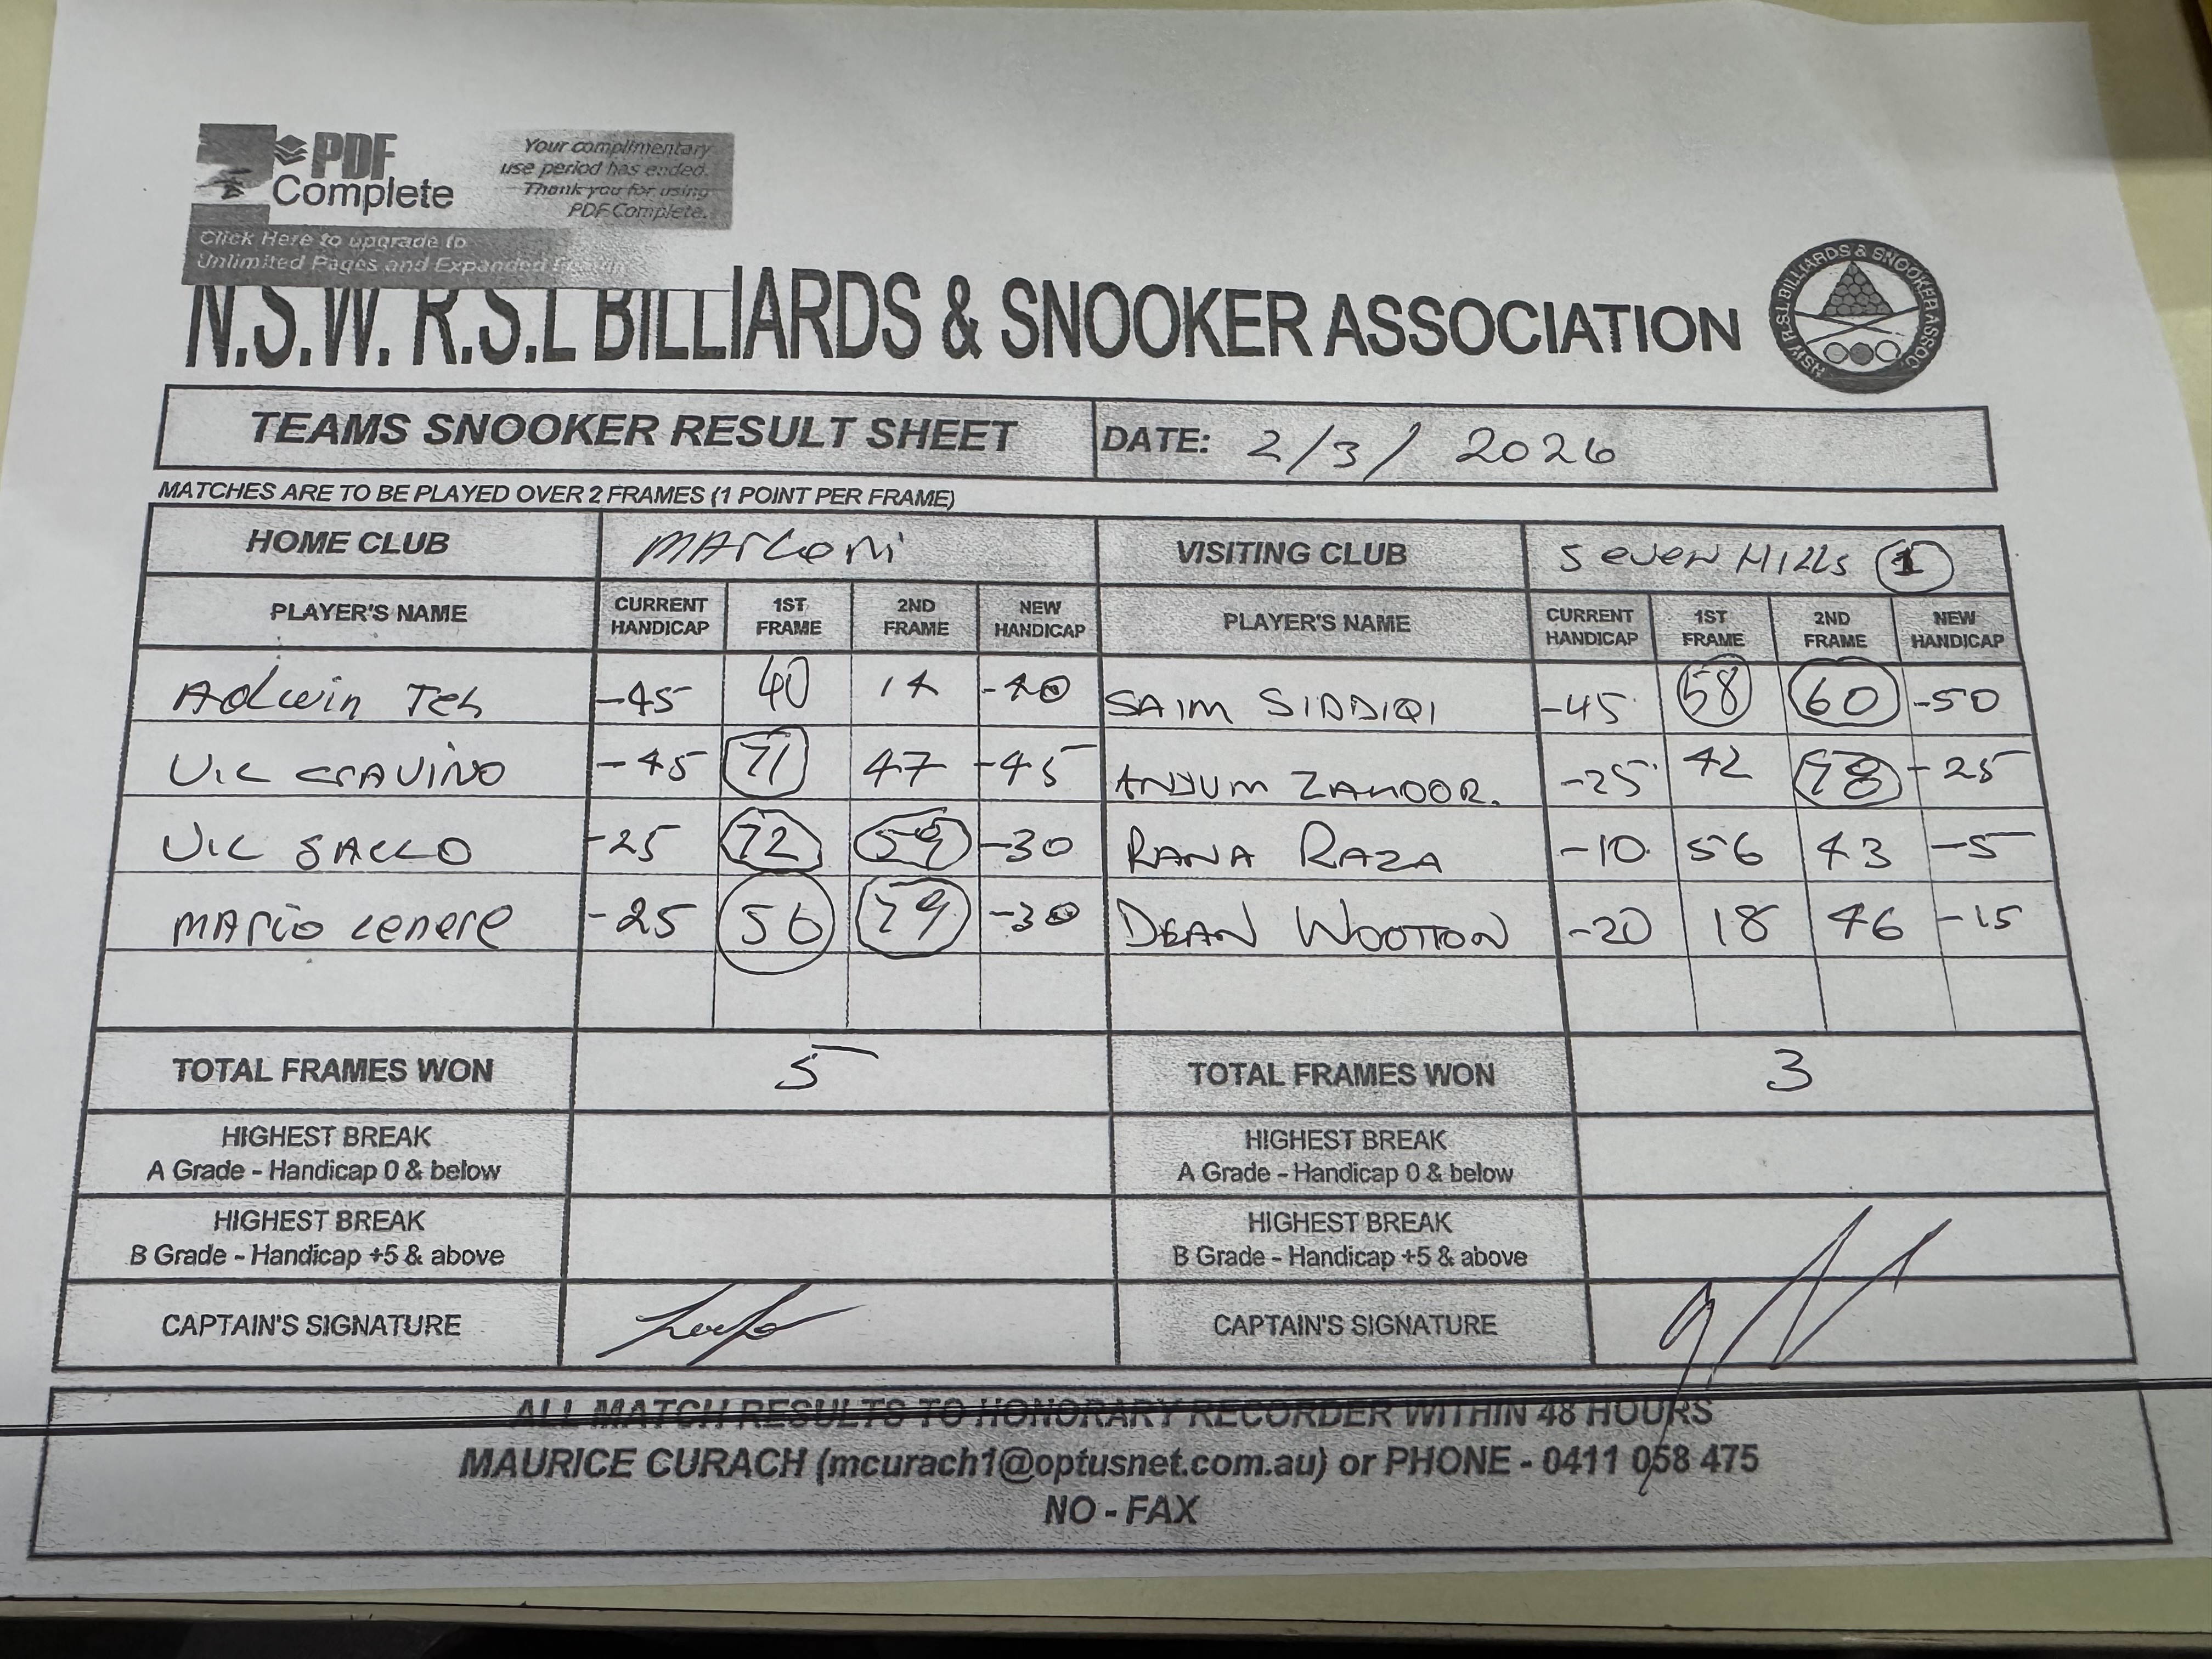 PDF
Complete
Your complimentary
use period has ended.
Thank you for using
PDF Complete.
Click Here to upgrade to
Unlimited Pages and Expanded
N.S.W. R.S.L BILLIARDS & SNOOKER ASSOCIATION
NSW R.S.L BILLIARDS & SNOOKER ASSOC.
TEAMS SNOOKER RESULT SHEET DATE: 2/3/2026
MATCHES ARE TO BE PLAYED OVER 2 FRAMES (1 POINT PER FRAME)
HOME CLUB MArconi VISITING CLUB Seven Hills 1
PLAYER'S NAME CURRENT HANDICAP 1ST FRAME 2ND FRAME NEW HANDICAP PLAYER'S NAME CURRENT HANDICAP 1ST FRAME 2ND FRAME NEW HANDICAP
Adwin Teh -45 40 14 -40 SAIM SIDDIQI -45 58 60 -50
Vic GRAVINO -45 71 47 -45 ANJUM ZAHOOR. -25 42 78 -25
Vic GALLO -25 72 59 -30 RANA RAZA -10 56 43 -5
MARIO Cenere -25 56 79 -30 DEAN WOOTTON -20 18 46 -15
TOTAL FRAMES WON 5 TOTAL FRAMES WON 3
HIGHEST BREAK HIGHEST BREAK
A Grade - Handicap 0 & below A Grade - Handicap 0 & below
HIGHEST BREAK HIGHEST BREAK
B Grade - Handicap +5 & above B Grade - Handicap +5 & above
CAPTAIN'S SIGNATURE CAPTAIN'S SIGNATURE
ALL MATCH RESULTS TO HONORARY RECORDER WITHIN 48 HOURS
MAURICE CURACH (mcurach1@optusnet.com.au) or PHONE - 0411 058 475
NO - FAX